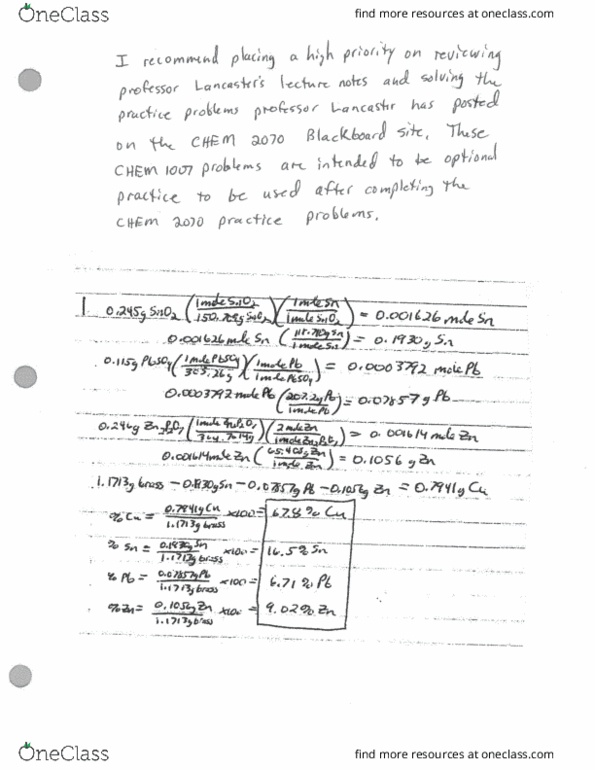 OneClass
find more resources at oneclass.com
I recommend placing a high priority on reviewing
professor Lancaster's lecture notes and solving the
practice problems professor Lancaster has posted
on the CHEM 2070 Blackboard site. These
CHEM 1007 problems are intended to be optional
practice to be used after completing the
CHEM 2070 practice problems.
1 0.245g SnO2 (1 mole SnO2 / 150.709g SnO2)(1 mole Sn / 1 mole SnO2) = 0.001626 mole Sn
0.001626 mole Sn (118.710g Sn / 1 mole Sn) = 0.1930 g Sn
0.115g PbSO4 (1 mole PbSO4 / 303.26g)(1 mole Pb / 1 mole PbSO4) = 0.0003792 mole Pb
0.0003792 mole Pb (207.2g Pb / 1 mole Pb) = 0.07857 g Pb
0.246g Zn2P2O7 (1 mole Zn2P2O7 / 304.7014g)(2 mole Zn / 1 mole Zn2P2O7) = 0.001614 mole Zn
0.001614 mole Zn (65.409g Zn / 1 mole Zn) = 0.1056 g Zn
1.1713g brass - 0.1930g Sn - 0.07857g Pb - 0.1056g Zn = 0.7941g Cu
% Cu = 0.7941g Cu / 1.1713g brass x100 = 67.8% Cu
% Sn = 0.1930g Sn / 1.1713g brass x100 = 16.5% Sn
% Pb = 0.07857g Pb / 1.1713g brass x100 = 6.71% Pb
% Zn = 0.1056g Zn / 1.1713g brass x100 = 9.02% Zn
OneClass
find more resources at oneclass.com